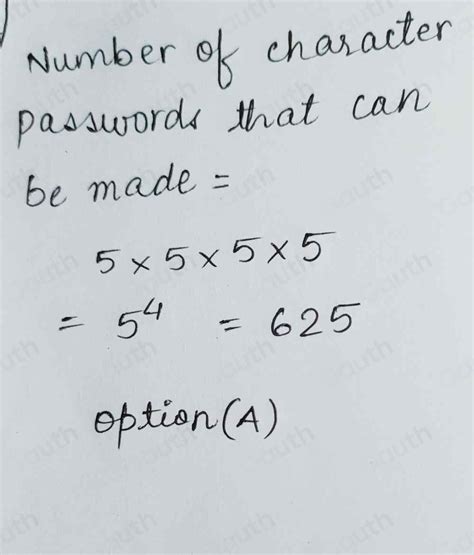 Number of character
passwords that can
be made =
5 × 5 × 5 × 5
= 5⁴ = 625
option (A)